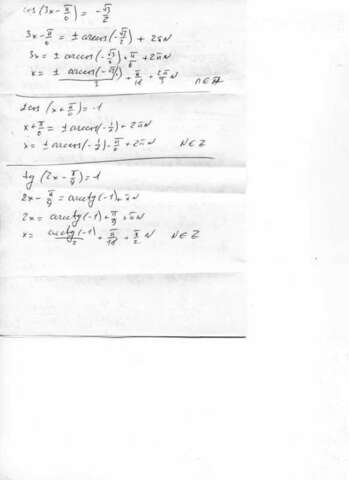 cos (3x - π/6) = -√3/2
3x - π/6 = ± arccos(-√3/2) + 2πN
3x = ± arccos(-√3/2) + π/6 + 2πN
x = ± arccos(-√3/2)/3 + π/18 + 2π/3 N n∈Z
2cos (x + π/6) = -1
x + π/6 = ± arccos(-1/2) + 2πN
x = ± arccos(-1/2) - π/6 + 2πN N∈Z
tg (2x - π/9) = 1
2x - π/9 = arctg(-1) + πN
2x = arctg(-1) + π/9 + πN
x = arctg(-1)/2 + π/18 + π/2 N N∈Z